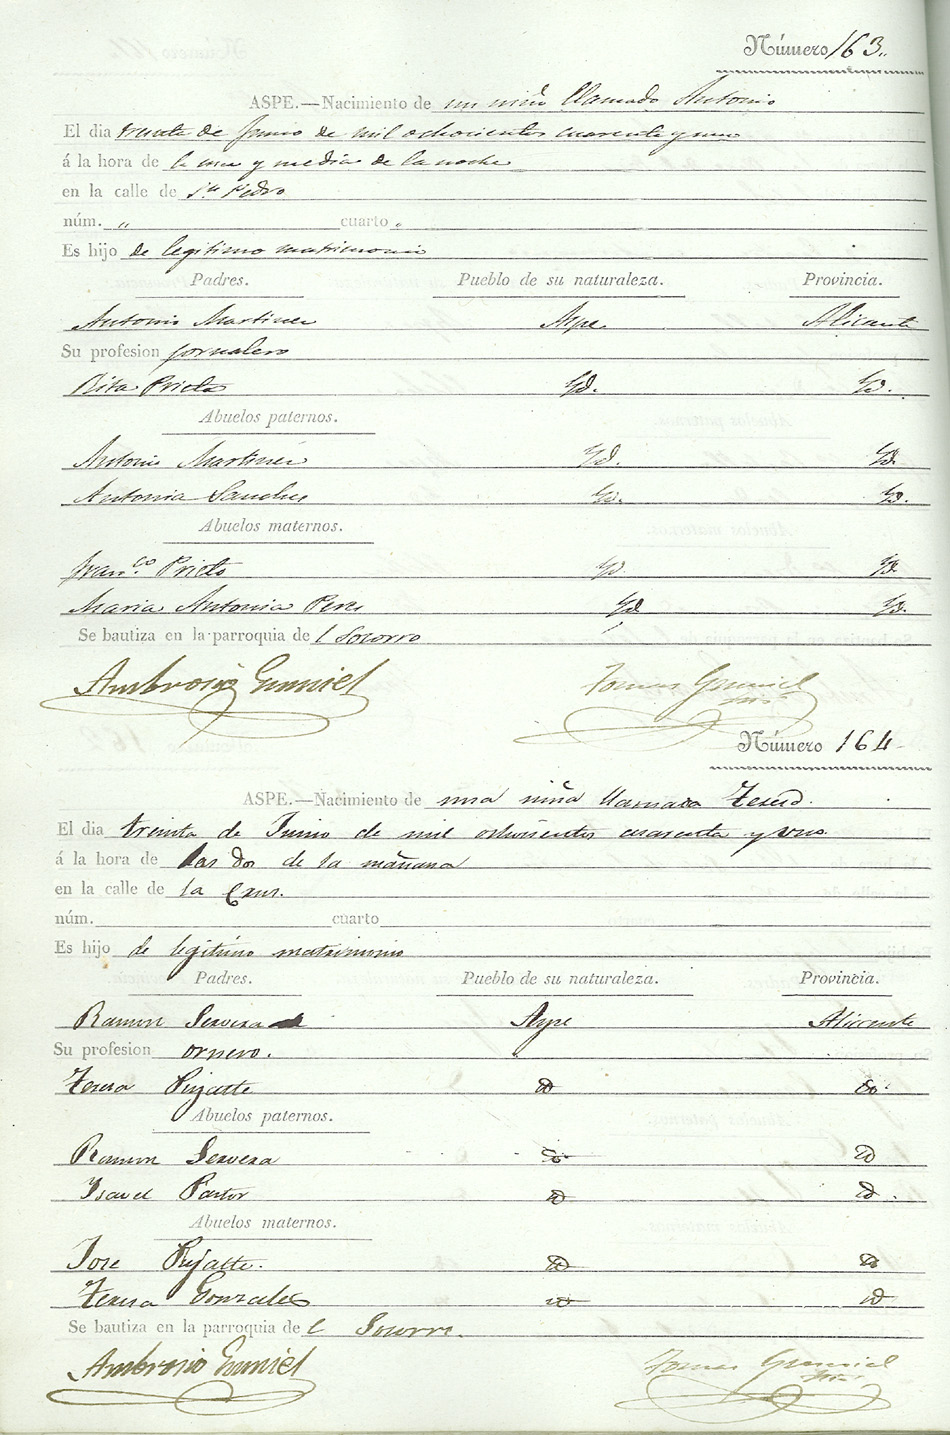 Número 163.
ASPE.—Nacimiento de un niño llamado Antonio
El dia treinta de Junio de mil ochocientos cuarenta y uno
á la hora de la una y media de la noche
en la calle de Sn. Pedro
núm. „ cuarto „
Es hijo de legitimo matrimonio
Padres. Pueblo de su naturaleza. Provincia.
Antonio Martinez Aspe Alicante
Su profesion jornalero
Rita Prieto Yd. Yd.
Abuelos paternos.
Antonio Martinez Yd. Yd.
Antonia Sanches Yd. Yd.
Abuelos maternos.
Franco. Prieto Yd Yd.
Maria Antonia Peres Yd Yd.
Se bautiza en la parroquia de l Socorro
Ambrosio Tomas
Número 164
ASPE.—Nacimiento de una niña llamada Teresa.
El dia treinta de Junio de mil ochocientos cuarenta y uno
á la hora de las dos de la mañana
en la calle de la Crus.
núm. cuarto
Es hijo de legitimo matrimonio
Padres. Pueblo de su naturaleza. Provincia.
Ramon Servera Aspe Alicante
Su profesion ornero.
Teresa Pujalte Yd Yd.
Abuelos paternos.
Ramon Servera Yd Yd
Isavel Pastor Yd Yd.
Abuelos maternos.
Jose Pujalte. Yd Yd
Teresa Gonzales Yd Yd
Se bautiza en la parroquia de l Socorro.
Ambrosio Tomas